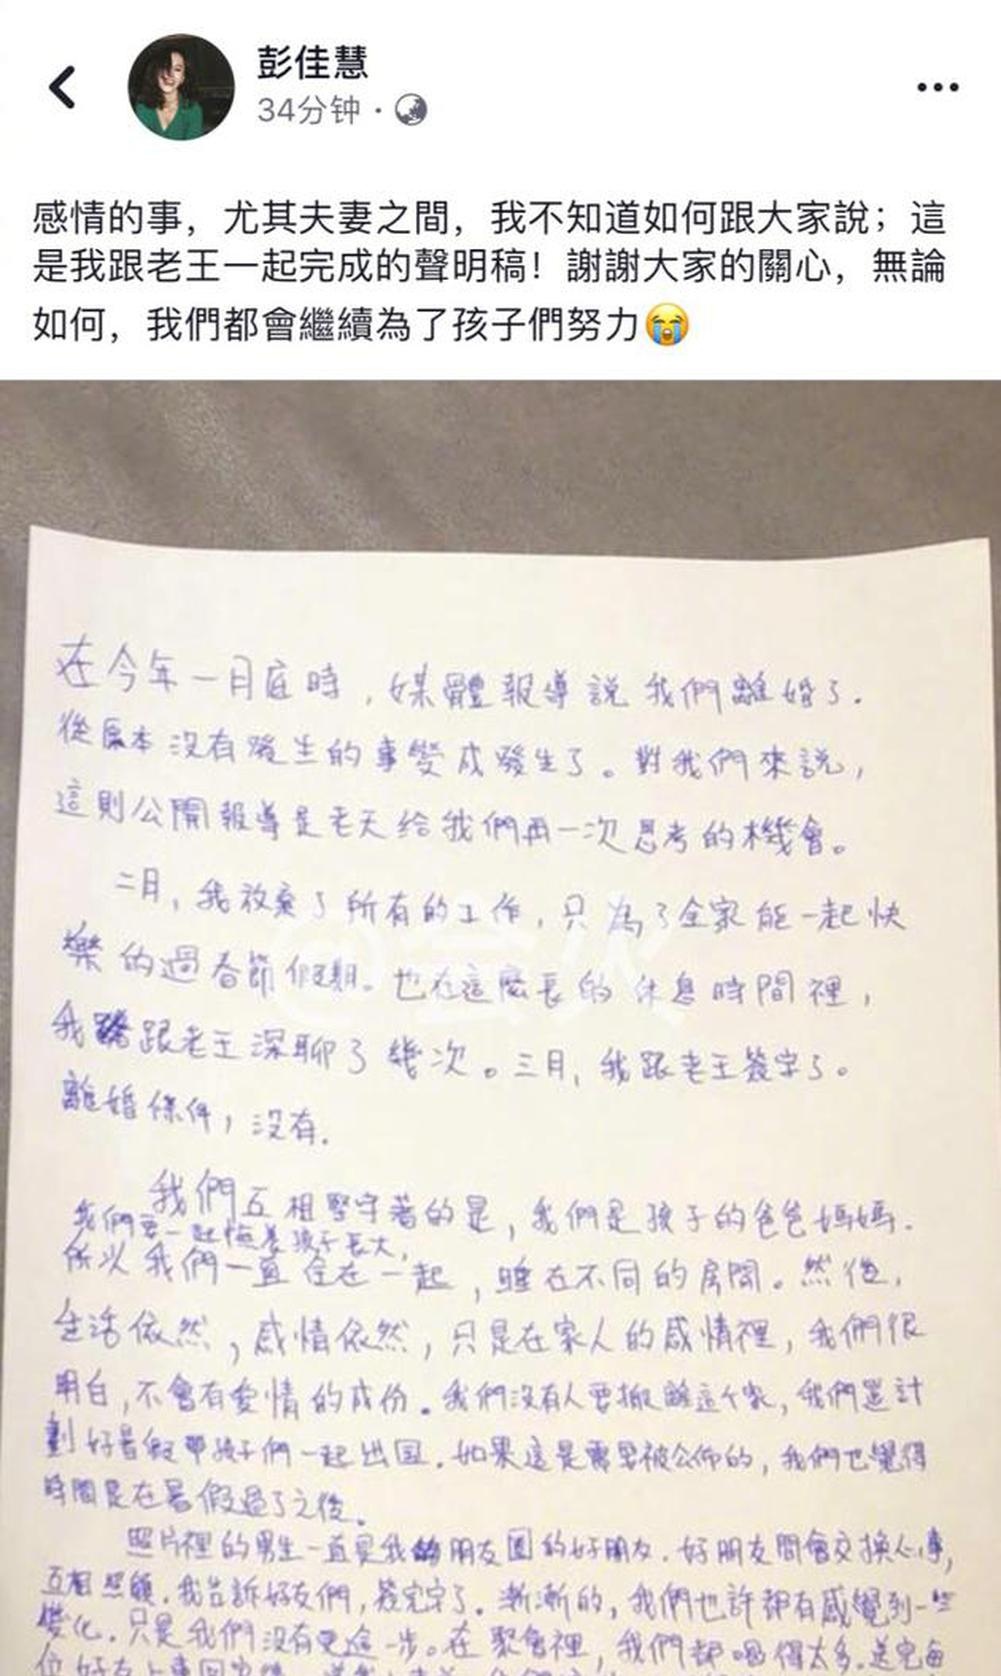 彭佳慧
34分钟
感情的事，尤其夫妻之間，我不知道如何跟大家說；這
是我跟老王一起完成的聲明稿！謝謝大家的關心，無論
如何，我們都會繼續為了孩子們努力😭
在今年一月底時，媒體報導說我們離婚了．
從原本沒有發生的事變成發生了。對我們來説，
這則公開報導是老天給我們再一次思考的機會。
二月，我放棄了所有的工作，只為了全家能一起快
樂的過春節假期。也在這麼長的休息時間裡，
我跟老王深聊了幾次。三月，我跟老王簽字了。
離婚條件，沒有．
我們互相堅守著的是，我們是孩子的爸爸媽媽．
我們要一起撫養孩子長大，
所以我們一直住在一起，睡在不同的房間。然後，
生活依然，感情依然，只是在家人的感情裡，我們很
明白，不會有愛情的成份。我們沒有人要搬離這个家，我們還計
劃好暑假帶孩子們一起出國．如果這是需要被公佈的，我們也覺得
時間是在暑假過了之後。
照片裡的男生一直是我朋友圈的好朋友．好朋友間會交換心事，
互相照顧．我告訴好友們，簽完字了．漸漸的，我們也許都有感覺到一些
變化．只是我們沒有更進一步。在聚會裡，我們都喝得太多．送完每
位好友上車回家